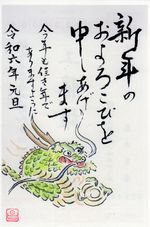 新年の
およろこびを
申しあげ
ます
今年も佳き年で
ありますように
令和六年 元旦